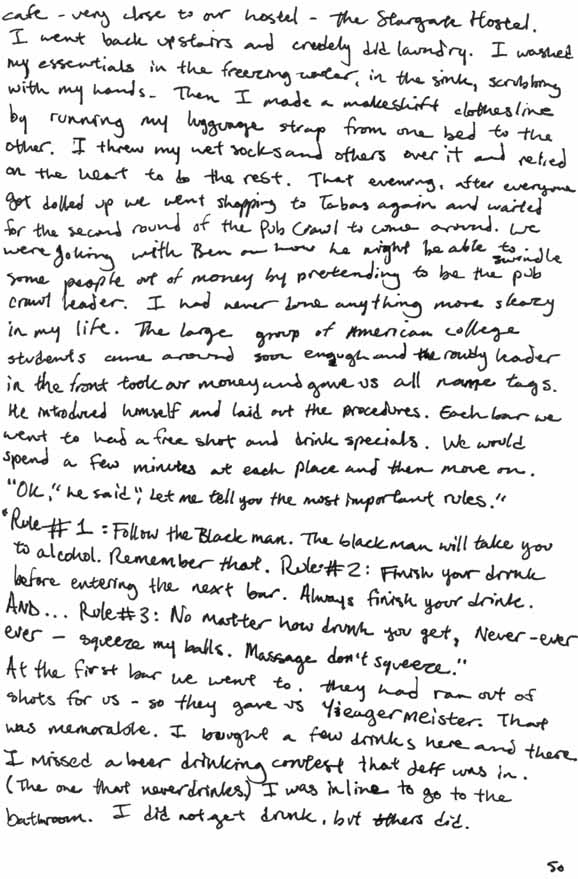 cafe - very close to our hostel - The Stargate Hostel.
I went back upstairs and crudely did laundry. I washed
my essentials in the freezing water, in the sink, scrubbing
with my hands. Then I made a makeshift clothesline
by running my lugguage strap from one bed to the
other. I threw my wet socks and others over it and relied
on the heat to do the rest. That evening, after everyone
got dolled up we went shopping to Tabas again and waited
for the second round of the Pub Crawl to come around. We
were joking with Ben on how he might be able to swindle
some people out of money by pretending to be the pub
crawl leader. I had never done anything more sleazy
in my life. The large group of American college
students came around soon enough and the rowdy leader
in the front took our money and gave us all name tags.
He introduced himself and laid out the procedures. Each bar we
went to had a free shot and drink specials. We would
spend a few minutes at each place and then move on.
"OK," he said, "Let me tell you the most important rules."
"Rule #1: Follow the Black man. The black man will take you
to alcohol. Remember that. Rule #2: Finish your drink
before entering the next bar. Always finish your drink.
AND... Rule #3: No matter how drunk you get, Never-ever
ever - squeeze my balls. Massage don't squeeze."
At the first bar we went to. they had ran out of
shots for us - so they gave us Yieagermeister. That
was memorable. I bought a few drinks here and there
I missed a beer drinking contest that Jeff was in.
(The one that never drinks.) I was in line to go to the
bathroom. I did not get drunk, but others did.
50